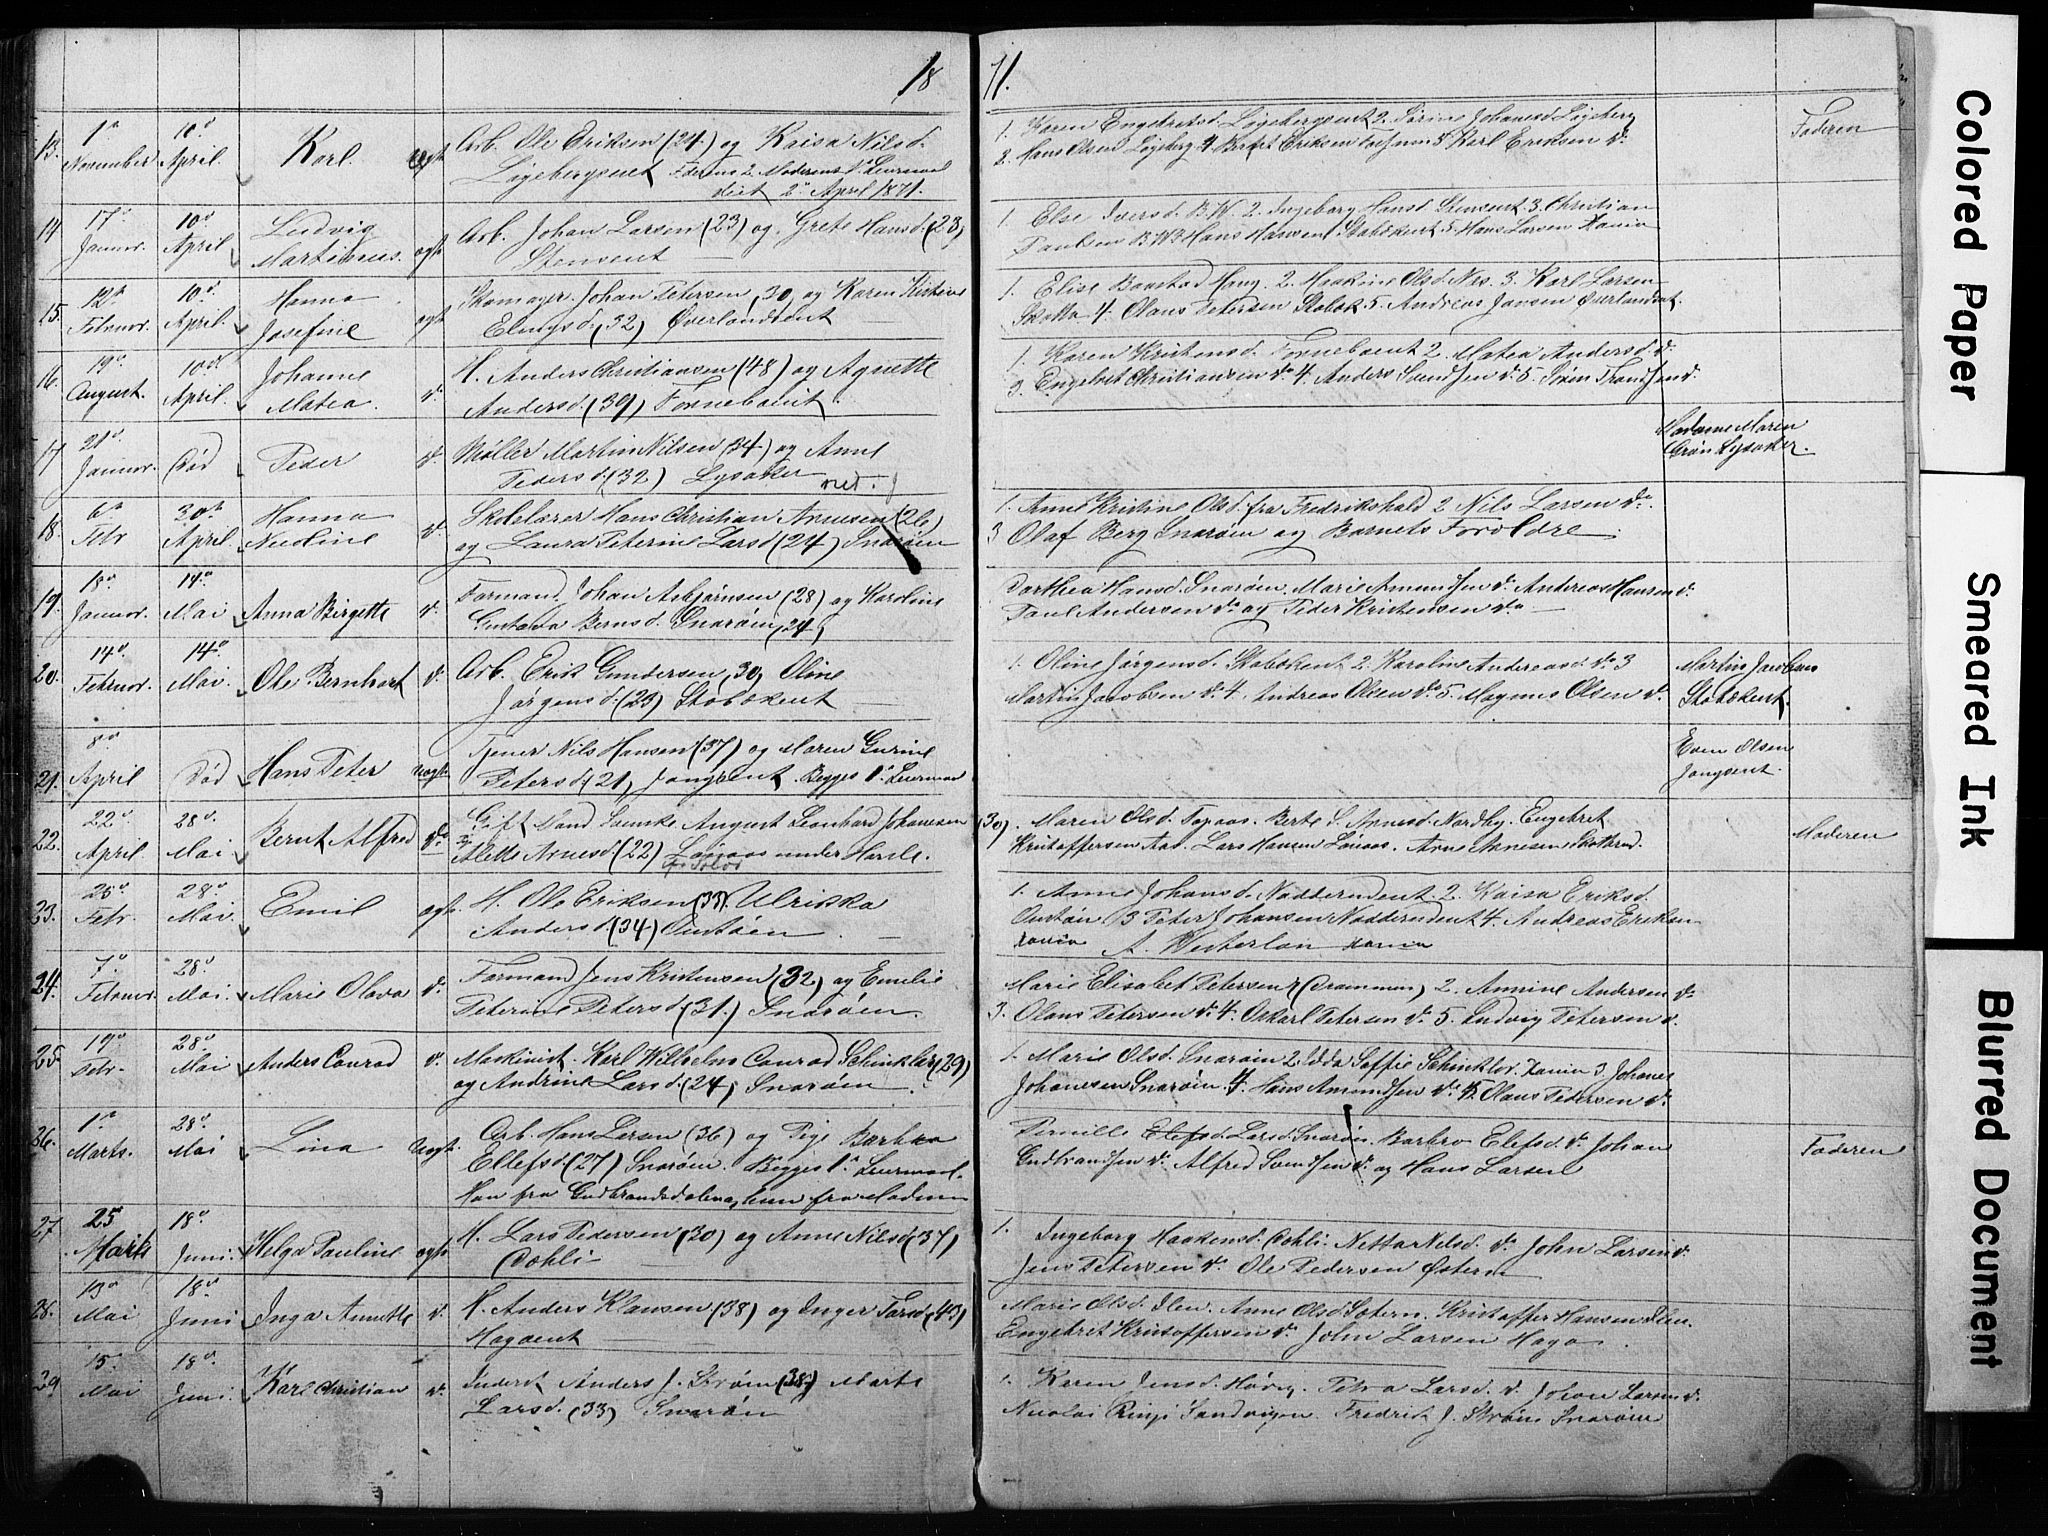 18
71.
13.
1ste
November
10de
April.
Karl.
uægt
Arb. Ole Eriksen (24) og Kaisa Nilsd.
Faderens 2. Moderens 1ste Leiermaal
2den April 1871.
1. Karen
2. Hans Olsen
Karl Eriksen do
Faderen
14
17de
Januar.
10de
April
Ludvig
Martinius.
ægt
Arb. Johan Larsen (23) og Grete Hansd. (23)
Stensent
1. Else Iversd. B.W. 2. Ingeborg Hansd. Stensent 3. Christian
Paulsen B.W. Hans Hansen Stabækent 5. Hans Larsen Xania
15.
12te
Februar.
10de
April.
Hanna
Josefine
ægt
Skomager Johan Petersen (30) og Karen Kirstine
(32) Øverlandsent
1. Elise Haug. 2. Maakine Olsd. Næs. 3. Karl Larsen
4. Olaus Petersen Stabæk 5. Andreas Jansen Øverlandsent.
16.
19de
August.
10de
April.
Johanne
Matea.
do
H. Anders Christiansen (48) og Agnette
Andersd. (39) Forneboent.
1. Karen Kristensd. Forneboent 2. Matea Andersd. do
3. Engebret Christiansen do 4. Anders Svendsen do 5. Søren Frandsen do.
17
21de
Januar.
Død
Peder
do
Møller Martin Nilsen (34) og Anne
Pedersd. (32) Lysaker
Madame Maren
Grøn Lysaker.
18.
6te
Febr
30te
April.
Hanna
Nicoline
do
Skolelærer Hans Christian Arnesen (26)
og Laura Peterine Larsd (24) Snarøen
1. Anne Kristine Olsd. fra Fredrikshald 2 Nils Larsen do
3 Olaf Berg Snarøen og Barnets Forældre.
19.
18de
Januar.
14de
Mai
Anna Birgitte
do
Formand Johan Asbjørnsen (28) og Karoline
Gustava Bernsd. Snarøen (24)
Dorthea Hansd. Snarøen. Marie Amundsen do Andreas Hansen do.
Paul Andersen do og Peder Kristensen do
20.
14de
Februar.
14de
Mai.
Ole Bernhart
do
Arb. Erik Gundersen (30) Oline
Jørgensd. (23) Stabækent
1. Oline Jørgensd. Stabækent 2. Karoline Andreasd. do 3
Martin Jacobsen do 4. Andreas Olsen do 5. Magnus Olsen do.
Martin Jacobsen
Stabækent.
21.
8de
April
Død
Hans Peter
uægt.
Tjener Nils Hansen (37) og Maren Gurine
Petersd. (21) Jongsent. Begges 1ste Leiermaal
Even Olsen
Jongsent.
22.
22de
April.
28de
Mai
Bernt Alfred
do
Gift Mand Svenske August Leonhard Johanesen (30).
og Alette Arnesd. (22) Lønaas under Hasle.
Maren Olsd. Berte S. Arnesd. Nordby. Engebret
Kristoffersen Aas. Lars Hansen Lønaas. Arne Arnesen
Moderen
23.
25de
Febr.
28de
Mai.
Emil
ægt.
H. Ole Eriksen (33). Ulrikka
Andersd. (34) Oustøen.
1. Anne Johansd. Nadderudent 2. Kaisa Eriksd.
Oustøen 3 Peter Johansen Nadderudent 4. Andreas Eriksen
Xania A. Westerlon Xania
24.
7de
Februar.
28de
Mai.
Marie Olava
do
Formand Jens Kristensen (32) og Emelie
Peterine Petersd. (31.) Snarøen.
Marie Elisabet Petersen (Drammen) 2. Annine Andersen do
3. Olaus Petersen do 4. Oskarl Petersen do 5. Ludvig Petersen do.
25.
19de
Febr.
28de
Mai
Anders Conrad
do
Maskinist. Karl Wilhelm Conrad Schinkler (29)
og Andrine Larsd. (24) Snarøen
1. Marie Olsd. Snarøen 2 Idda Soffie Schinkler. Xania 3 Johanes
Johanesen Snarøen. 4. Hans Amundsen do 5. Olaus Petersen do
26.
1ste
Marts.
28de
Mai
Lina
uægt.
Arb. Hans Larsen (36) og Pige Barbra
Ellefsd. (27) Snarøen. Begges 1ste Leiermaal.
Han fra Gudbrandsdalen, hun fra Modum
Pernille Elefsd. Larsd. Snarøen. Barbro Elefsd. do Johan
Gudbrandsen do. Alfred Svendsen do og Hans Larsen
Faderen
27.
25
Marts
18de
Juni.
Helga Pauline
ægt.
H. Lars Pedersen (30) og Anne Nilsd. (37)
Dæhli
1. Ingeborg Haakensd. Dæhli. Netta Nilsd. do John Larsen do
Jens Petersen do. Ole Pedersen Østern
28.
13de
Mai
18de
Juni
Inga Annette
do
H. Anders Klausen (38) og Inger Larsd. (43)
Hagaent
Marie Olsd. Ilen. Anne Olsd. Sætern. Kristoffer Hansen Ilen.
Engebret Kristoffersen do John Larsen Haga.
29
15.
Mai
18de
Juni.
Karl Christian
do
Inderst Anders J. Strøm (38) Marte
Larsd. (33) Snarøen
1. Karen Jensd. Høvig. Petra Larsd. do. Johan Larsen do.
Nicolai Ringi Sandvigen. Fredrik J. Strøm Snarøen
Colored Paper
Smeared Ink
Blurred Document